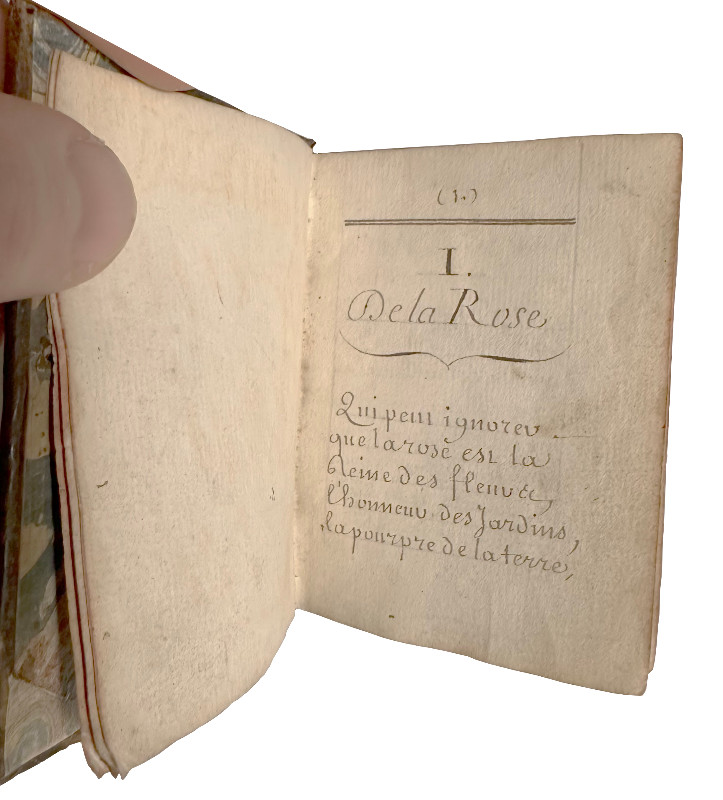 (1.)
I.
De la Rose
Qui peut ignorer
que la rose est la
Reine des fleurs,
l'honneur des Jardins,
la pourpre de la terre,